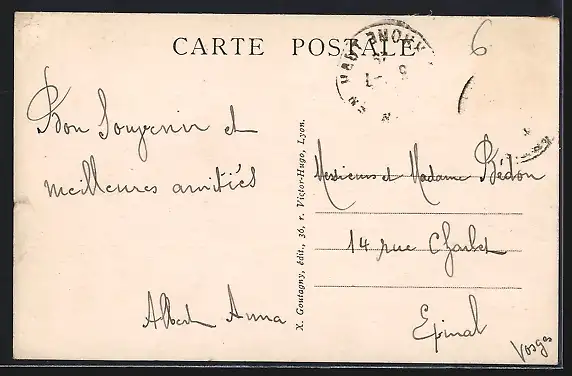 CARTE POSTALE
6
Bon Souvenir et
meilleures amitiés
Albert Anna
X. Goutagny, édit., 36, r. Victor-Hugo, Lyon.
Messieurs et Madame Bédon
14 rue Charlet
Epinal
Vosges